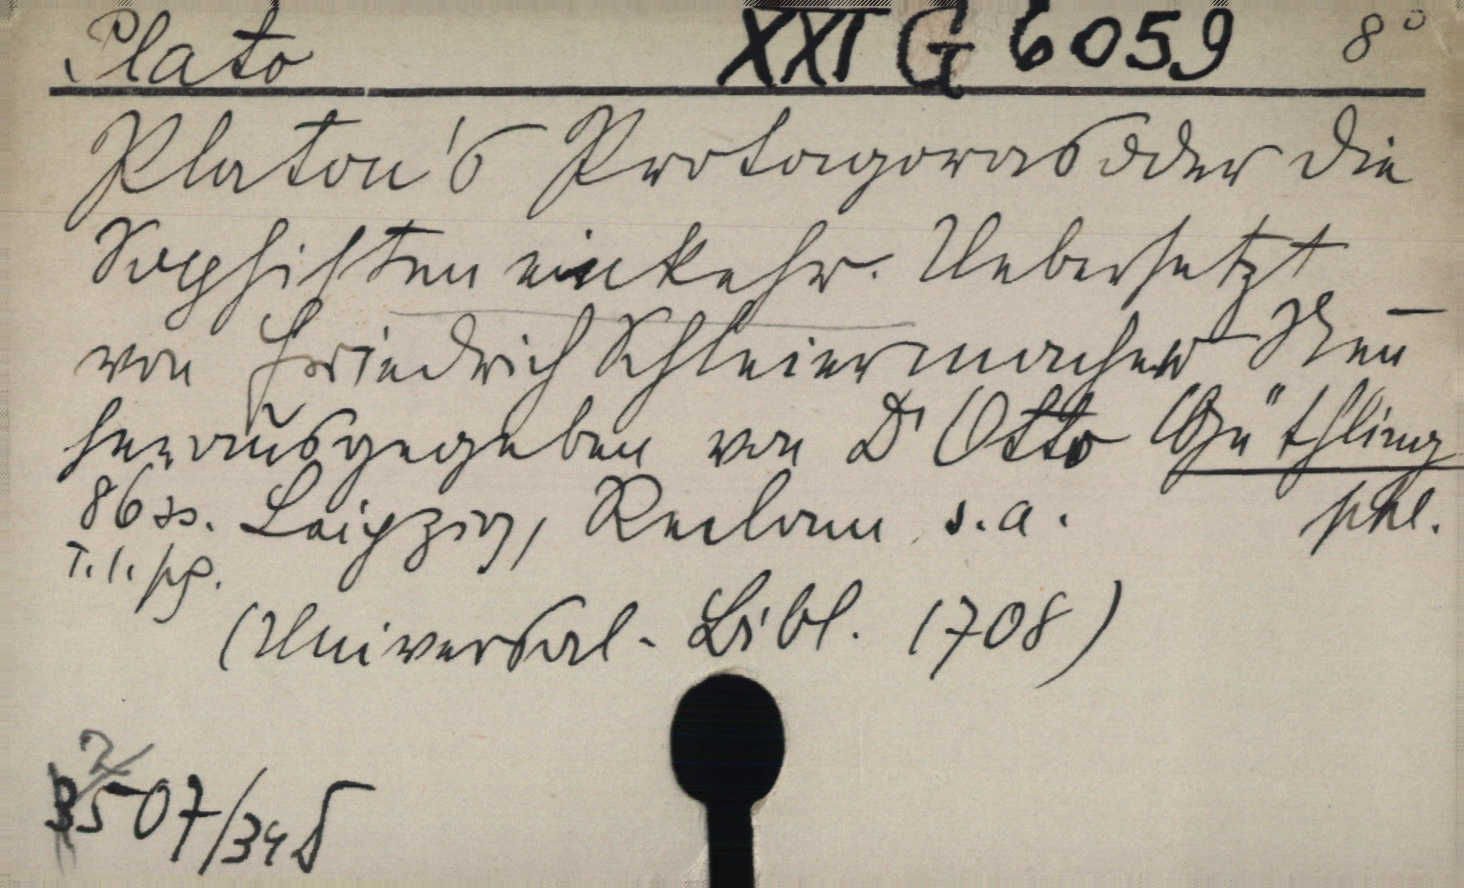 Plato XXI G 6059 8°
Platon's Protagoras oder die
Sophisteneinkehr. Uebersetzt
von Friedrich Schleiermacher Neu
herausgegeben von Dr Otto Güthling
86 ss. Leipzig, Reclam s.a. phl.
T. l. pg.
(Universal-Bibl. 1708)
2
3507/34